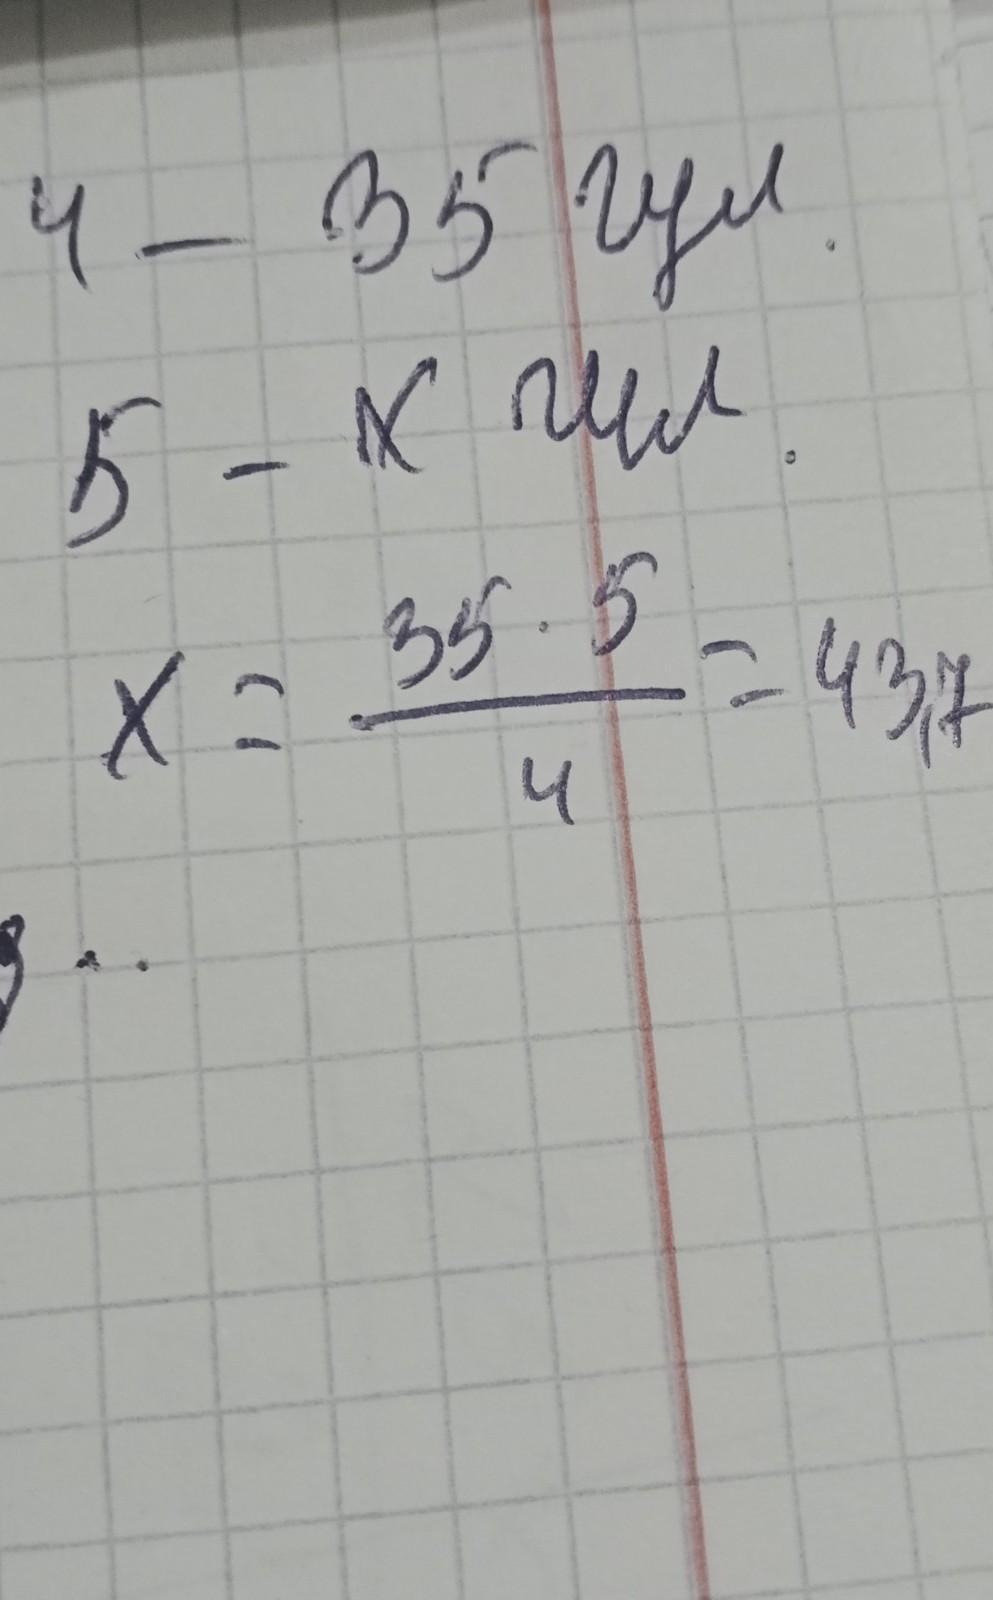 4 - 35 гул.
5 - x гул.
x = 35 · 5 / 4 = 43,7